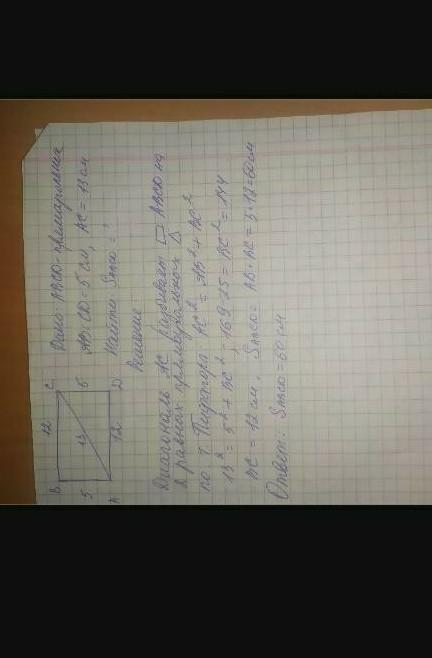 B 12 C
5 13 5
A 12 D
Дано: ABCD - прямоугольник
AB = CD = 5 см, AC = 13 см
Найти: S_ABCD = ?
Решение
Диагональ AC разбивает ▭ ABCD на
2 равных прямоугольных Δ
по т. Пифагора: AC² = AB² + BC²
13² = 5² + BC²; 169-25 = BC² = 144
BC = 12 см. S_ABCD = AB · BC = 5 · 12 = 60 см
Ответ: S_ABCD = 60 см